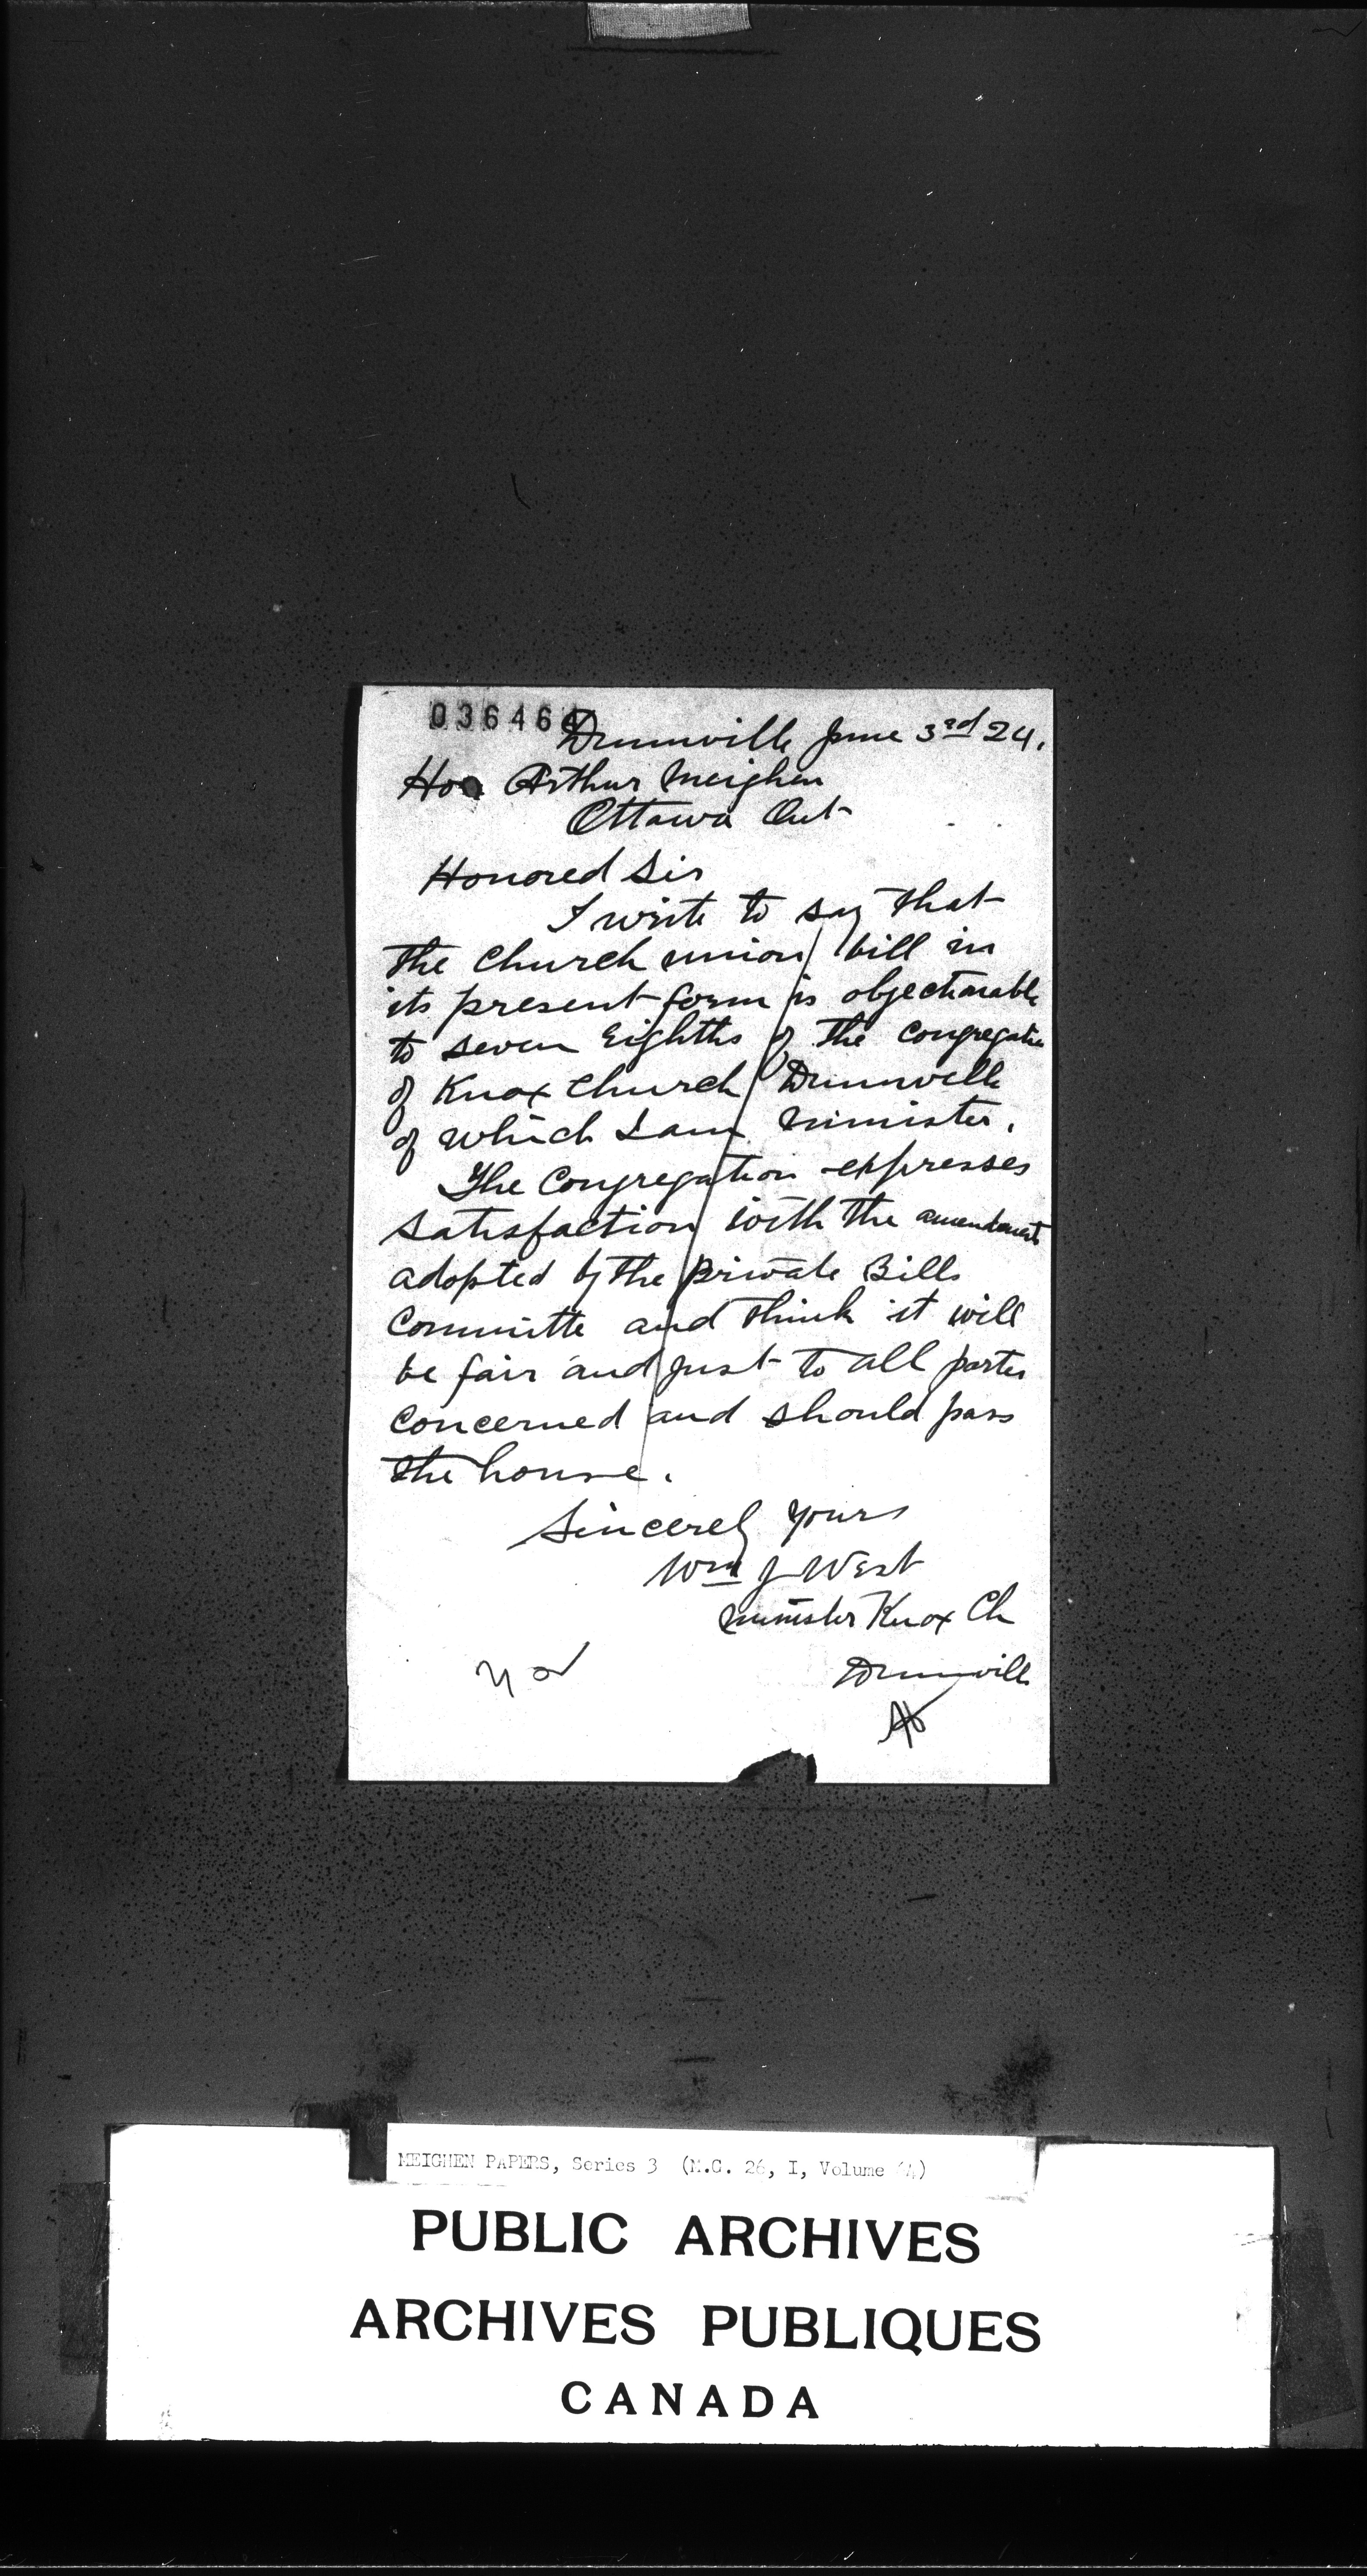 036464
Dunnville June 3rd 24.
Hon Arthur Meighen
Ottawa Ont
Honored Sir
I write to say that
the Church union bill in
its present form is objectionable
to seven Eighths of the congregation
of Knox Church Dunnville
of which I am minister.
The Congregation expresses
satisfaction with the amendments
adopted by the Private Bills
Committe and think it will
be fair and just to all parties
concerned and should pass
the house.
Sincerely yours
Wm J West
minister Knox Ch
Dunnville
MEIGHEN PAPERS, Series 3 (M.G. 26, I, Volume
PUBLIC ARCHIVES
ARCHIVES PUBLIQUES
CANADA